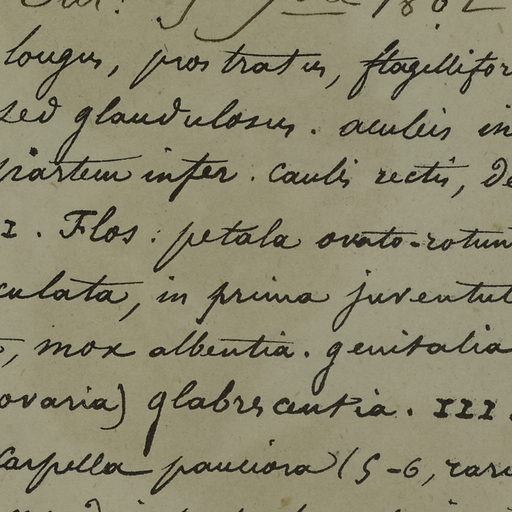 1862
longus, prostratus, flagellifor
sed glandulosus. aculeis in
partem infer. caulis rectis, de
I. Flos: petala ovato-rotun
culata, in prima juventut
mox albentia. genitalia
ovaria) glabrescentia. III.
Carpella pauciora (5-6, rari